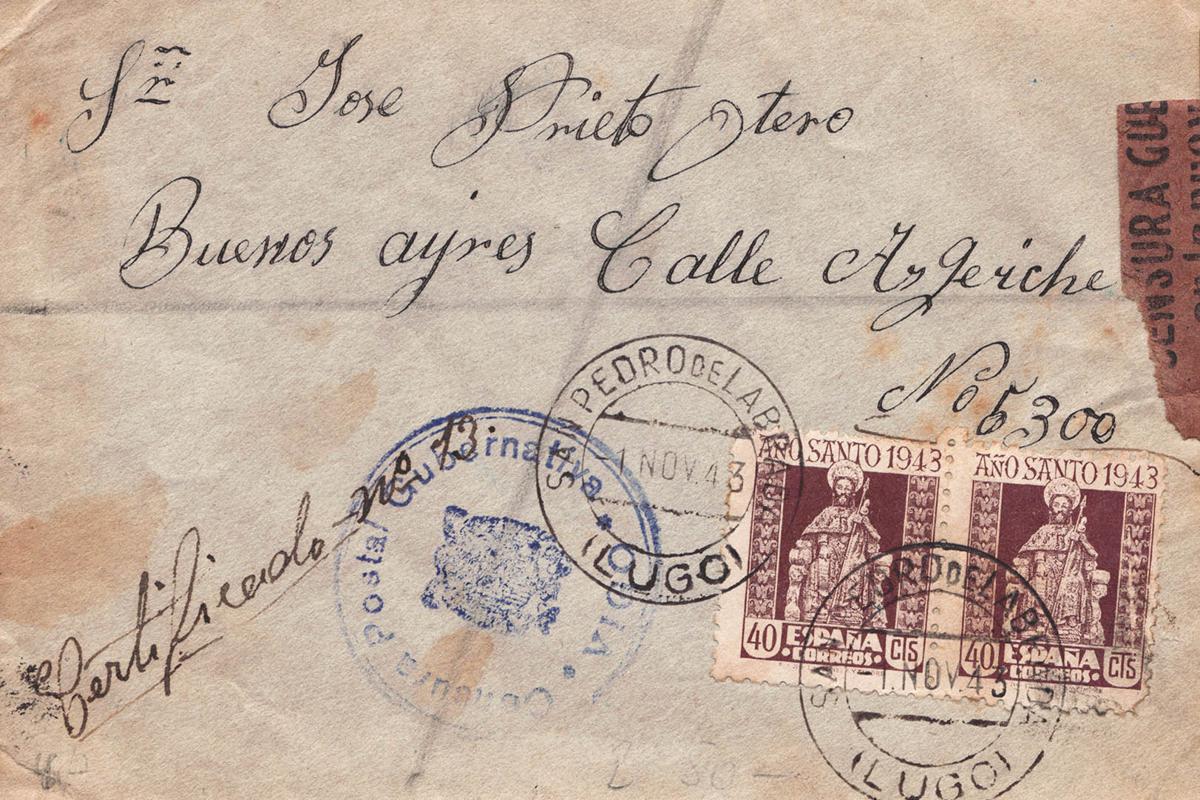 Sr Jose Prieto Otero
Buenos ayres Calle Azgeriche
No 5300
CENSURA GUB
Certificado nº 13
Censura Postal Gubernativa * VIGO *
SAN PEDRO DE LABRADA
-1 NOV.43
(LUGO)
AÑO SANTO 1943
40 ESPAÑA CTS
CORREOS
AÑO SANTO 1943
40 ESPAÑA CTS
CORREOS
SAN PEDRO DE LABRADA
-1 NOV.43
(LUGO)